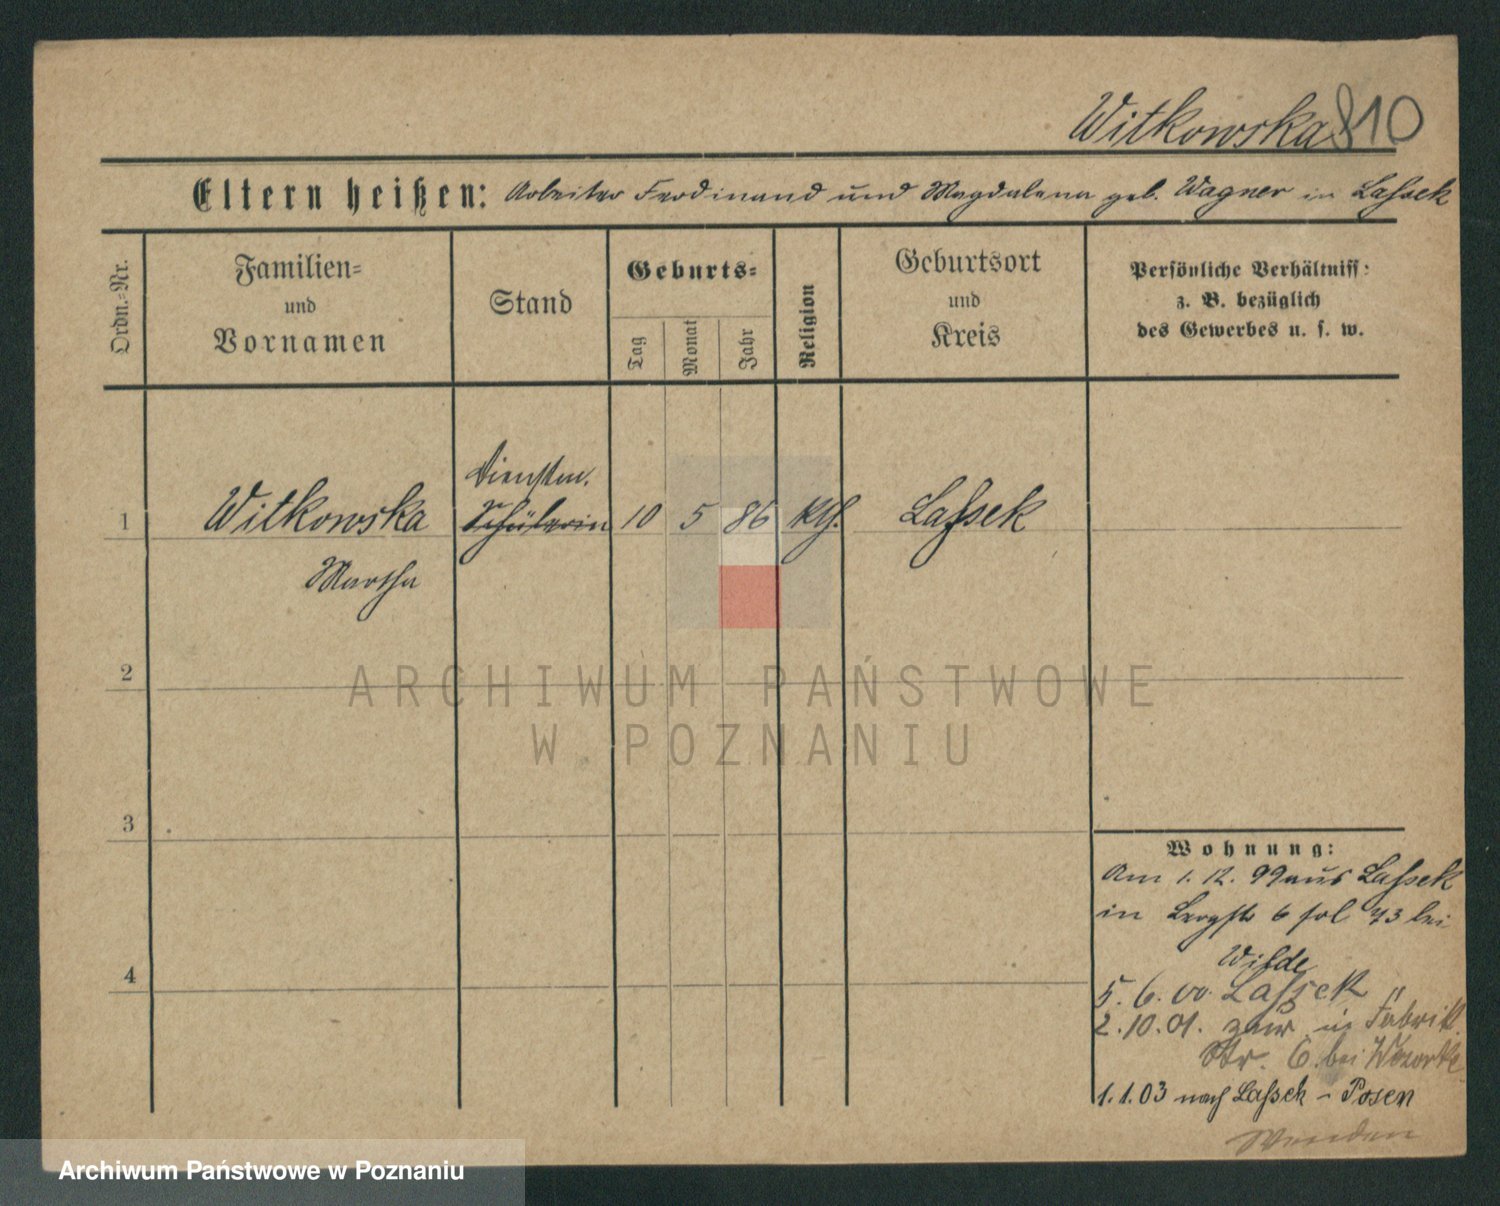 Witkowska 810
Eltern heißen: Arbeiter Ferdinand und Magdalena geb. Wagner in Lassek
Ordn.-Nr.
Familien-
und
Vornamen
Stand
Geburts-
Tag
Monat
Jahr
Religion
Geburtsort
und
Kreis
Persönliche Verhältniss:
z. B. bezüglich
des Gewerbes u. s. w.
Dienstm.
1 Witkowska Schülerin 10 5 86 kth. Lassek
Martha
2
3
4
Wohnung:
Am 1. 12. 99 aus Lassek
in Bergstr 6 fol 73 bei
Wilde
5. 6. 00. Lassek "
2. 10. 01. zur. in Fabrik
Str. 6. bei
1. 1. 03 nach Lassek - Posen
Wenden
ARCHIWUM PAŃSTWOWE
W POZNANIU
Archiwum Państwowe w Poznaniu